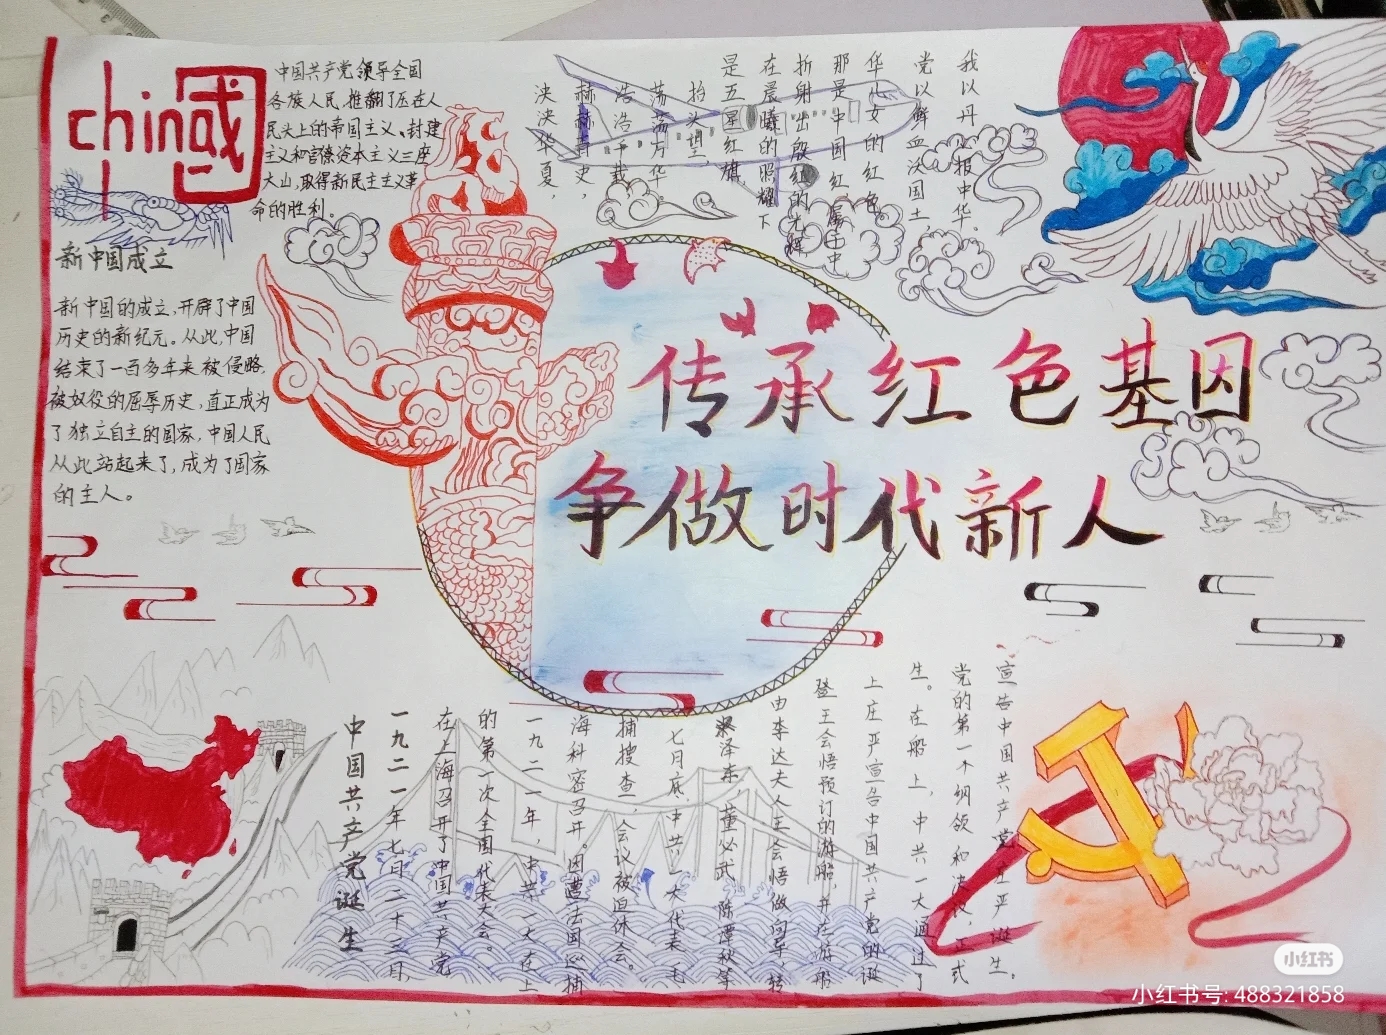 china
国
中国共产党领导全国
各族人民,推翻了压在人
民头上的帝国主义、封建
主义和官僚资本主义三座
大山,取得新民主主义革
命的胜利。
新中国成立
新中国的成立,开辟了中国
历史的新纪元。从此,中国
结束了一百多年来被侵略,
被奴役的屈辱历史,直正成为
了独立自主的国家,中国人民
从此站起来了,成为了国家
的主人。
泱泱华夏，
赫赫青史，
浩浩千载
荡荡万华
抬头望，
是五星红旗
在晨曦的照耀下
折射出殷红的光辉
那是中国红 属于中
华儿女的红色
党以鲜血沃国土，
我以丹心报中华。
传承红色基因
争做时代新人
中国共产党诞生
一九二一年七月二十三日，
在上海召开了中国共产党
的第一次全国代表大会。
一九二一年，中共一大在上
海科密召开。因遭法国巡捕
捕搜查，会议被迫休会。
七月底，中共一大代表毛
泽东，董必武，陈潭秋等
由李达夫人王会悟做向导，转
登王会悟预订的游船，并在游船
上庄严宣告中国共产党的诞
生。在船上，中共一大通过了
党的第一个纲领和决议，正式
宣告中国共产党庄严诞生。
小红书
小红书号: 488321858